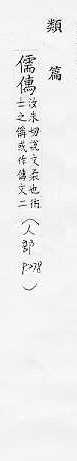 類篇
儒
汝朱切說文柔也術
士之偁或作 文二
(人部 P278)